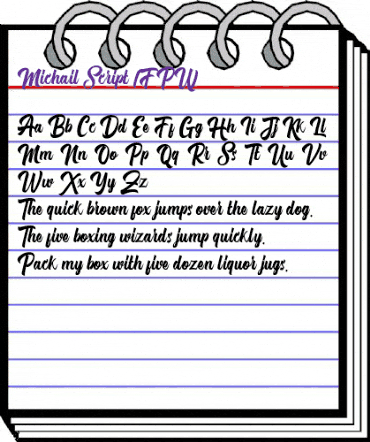 Michail Script (FPW)
Aa Bb Cc Dd Ee Ff Gg Hh Ii Jj Kk Ll
Mm Nn Oo Pp Qq Rr Ss Tt Uu Vv
Ww Xx Yy Zz
The quick brown fox jumps over the lazy dog.
The five boxing wizards jump quickly.
Pack my box with five dozen liquor jugs.